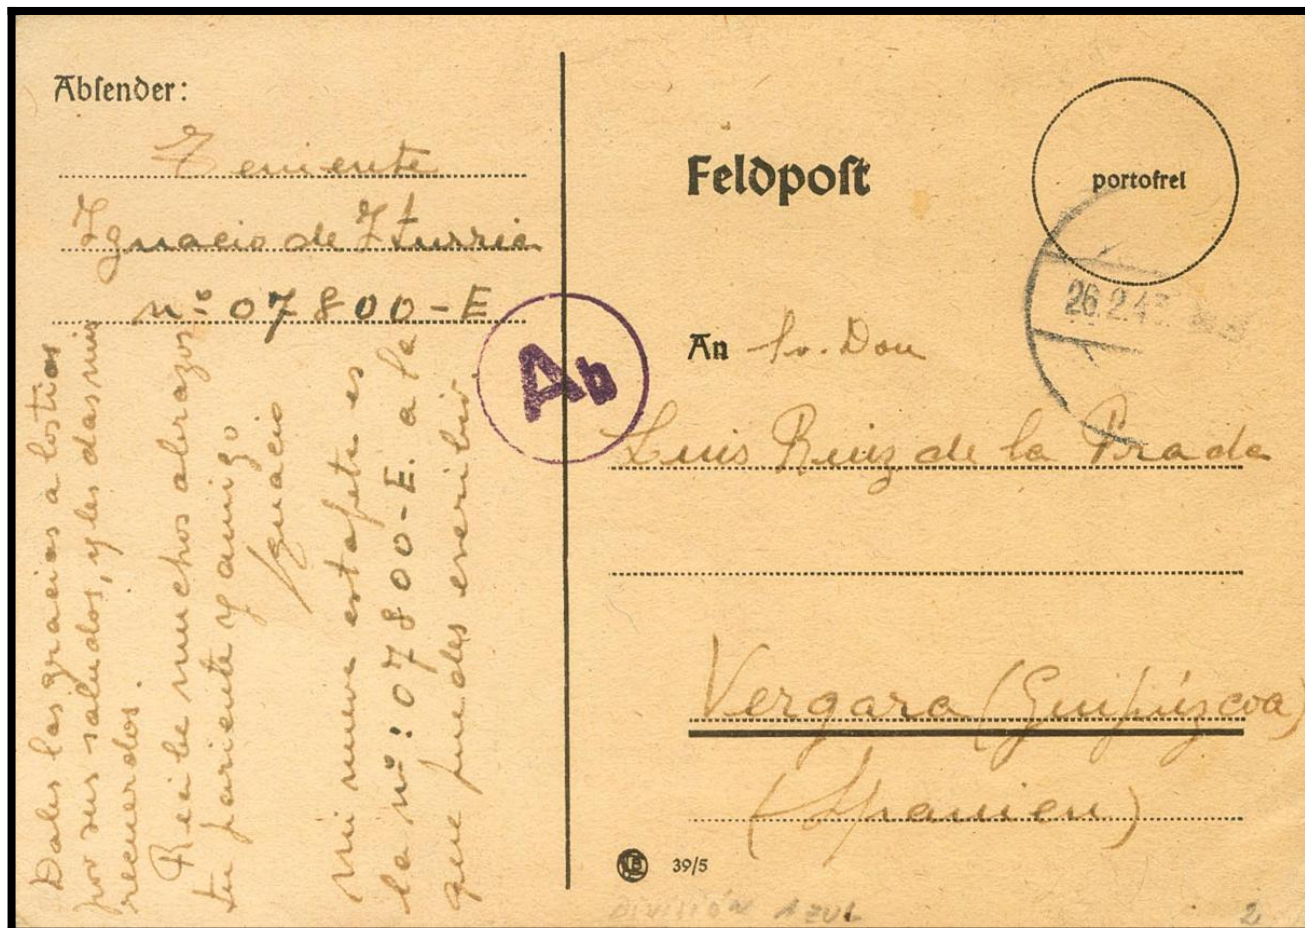 Absender:
Teniente
Ignacio de Iturria
nº 07800-E
Dales las gracias a los tios
por sus saludos, y les das mis
recuerdos.
Recibe muchos abrazos
tu pariente y amigo
Ignacio
mi nueva estafeta es
la nº: 07800-E. a la
que puedes escribir.
Ab
Feldpost
portofrei
26.2.4
An Sr. Don
Luis Ruiz de la Prada
Vergara (Guipúzcoa)
(Spanien)
39/5
DIVISIÓN AZUL
2